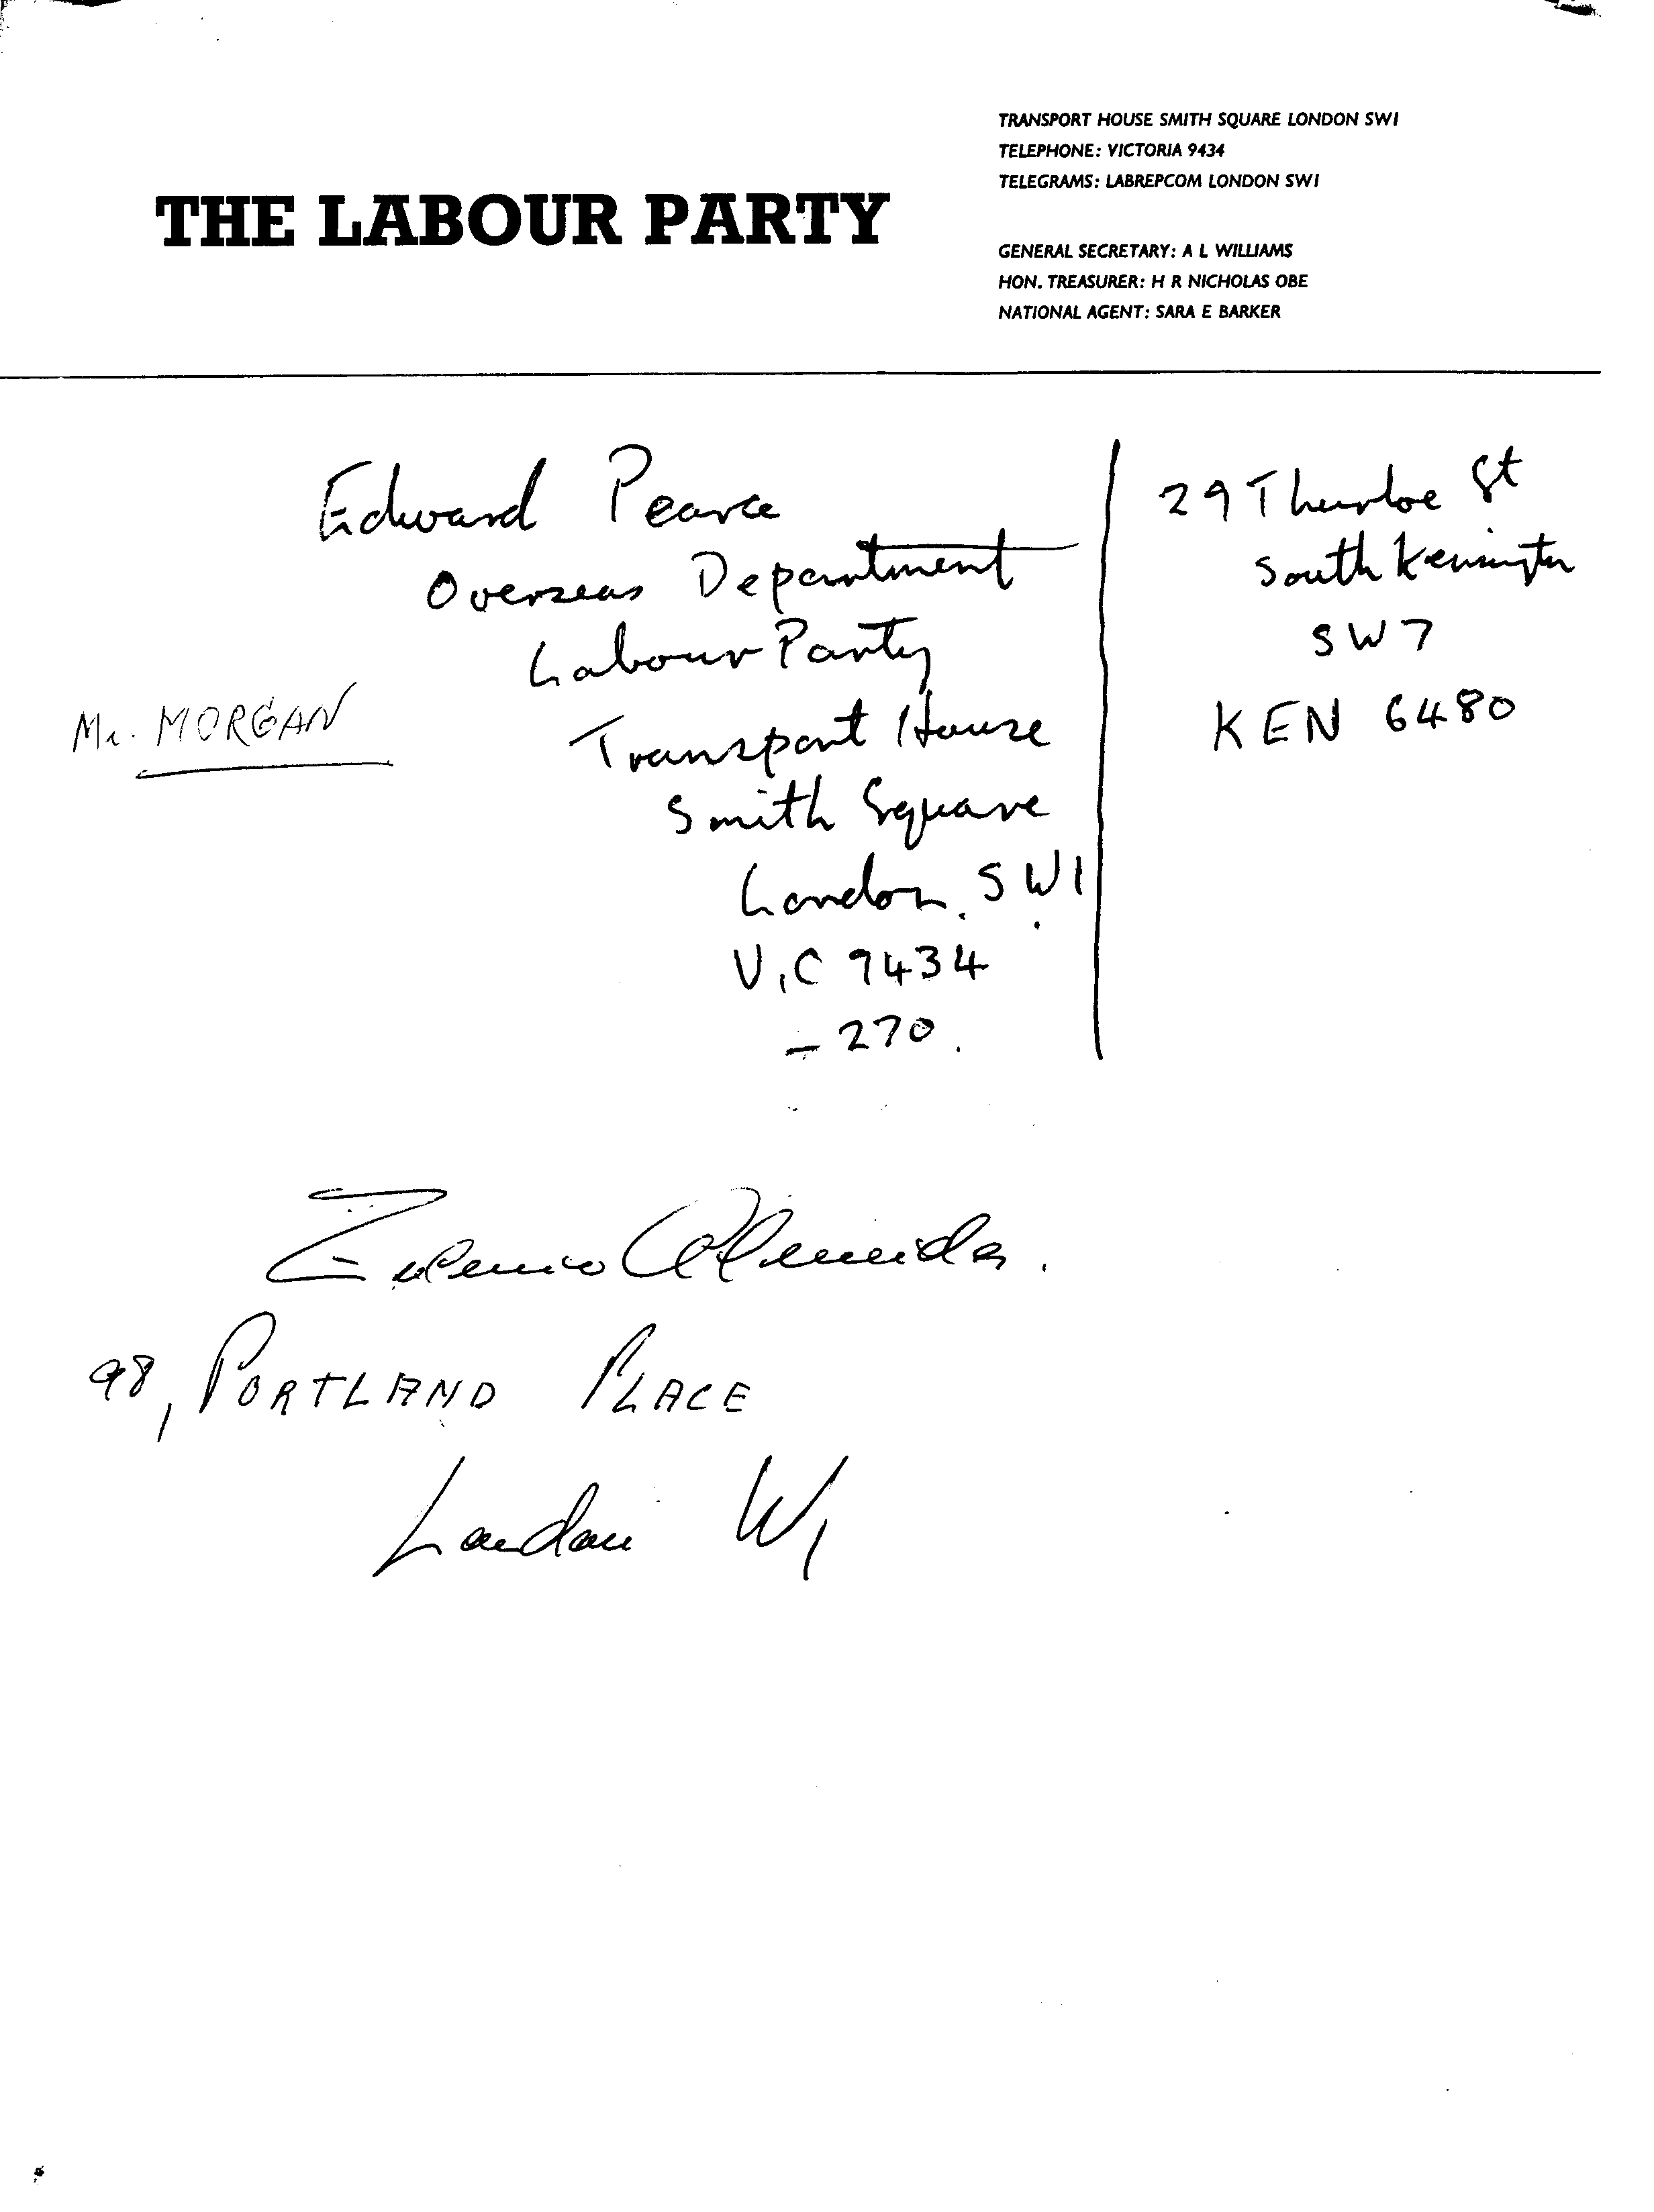 TRANSPORT HOUSE SMITH SQUARE LONDON SW1
TELEPHONE: VICTORIA 9434
TELEGRAMS: LABREPCOM LONDON SW1
THE LABOUR PARTY
GENERAL SECRETARY: A L WILLIAMS
HON. TREASURER: H R NICHOLAS OBE
NATIONAL AGENT: SARA E BARKER
Edward Pearce
Overseas Department
Labour Party
Transport House
Smith Square
London. SW1.
VIC 9434
- 270.
29 Thurloe St
South Kensington
SW7
KEN 6480
Mr. MORGAN
Almeida.
98, PORTLAND PLACE
London W1